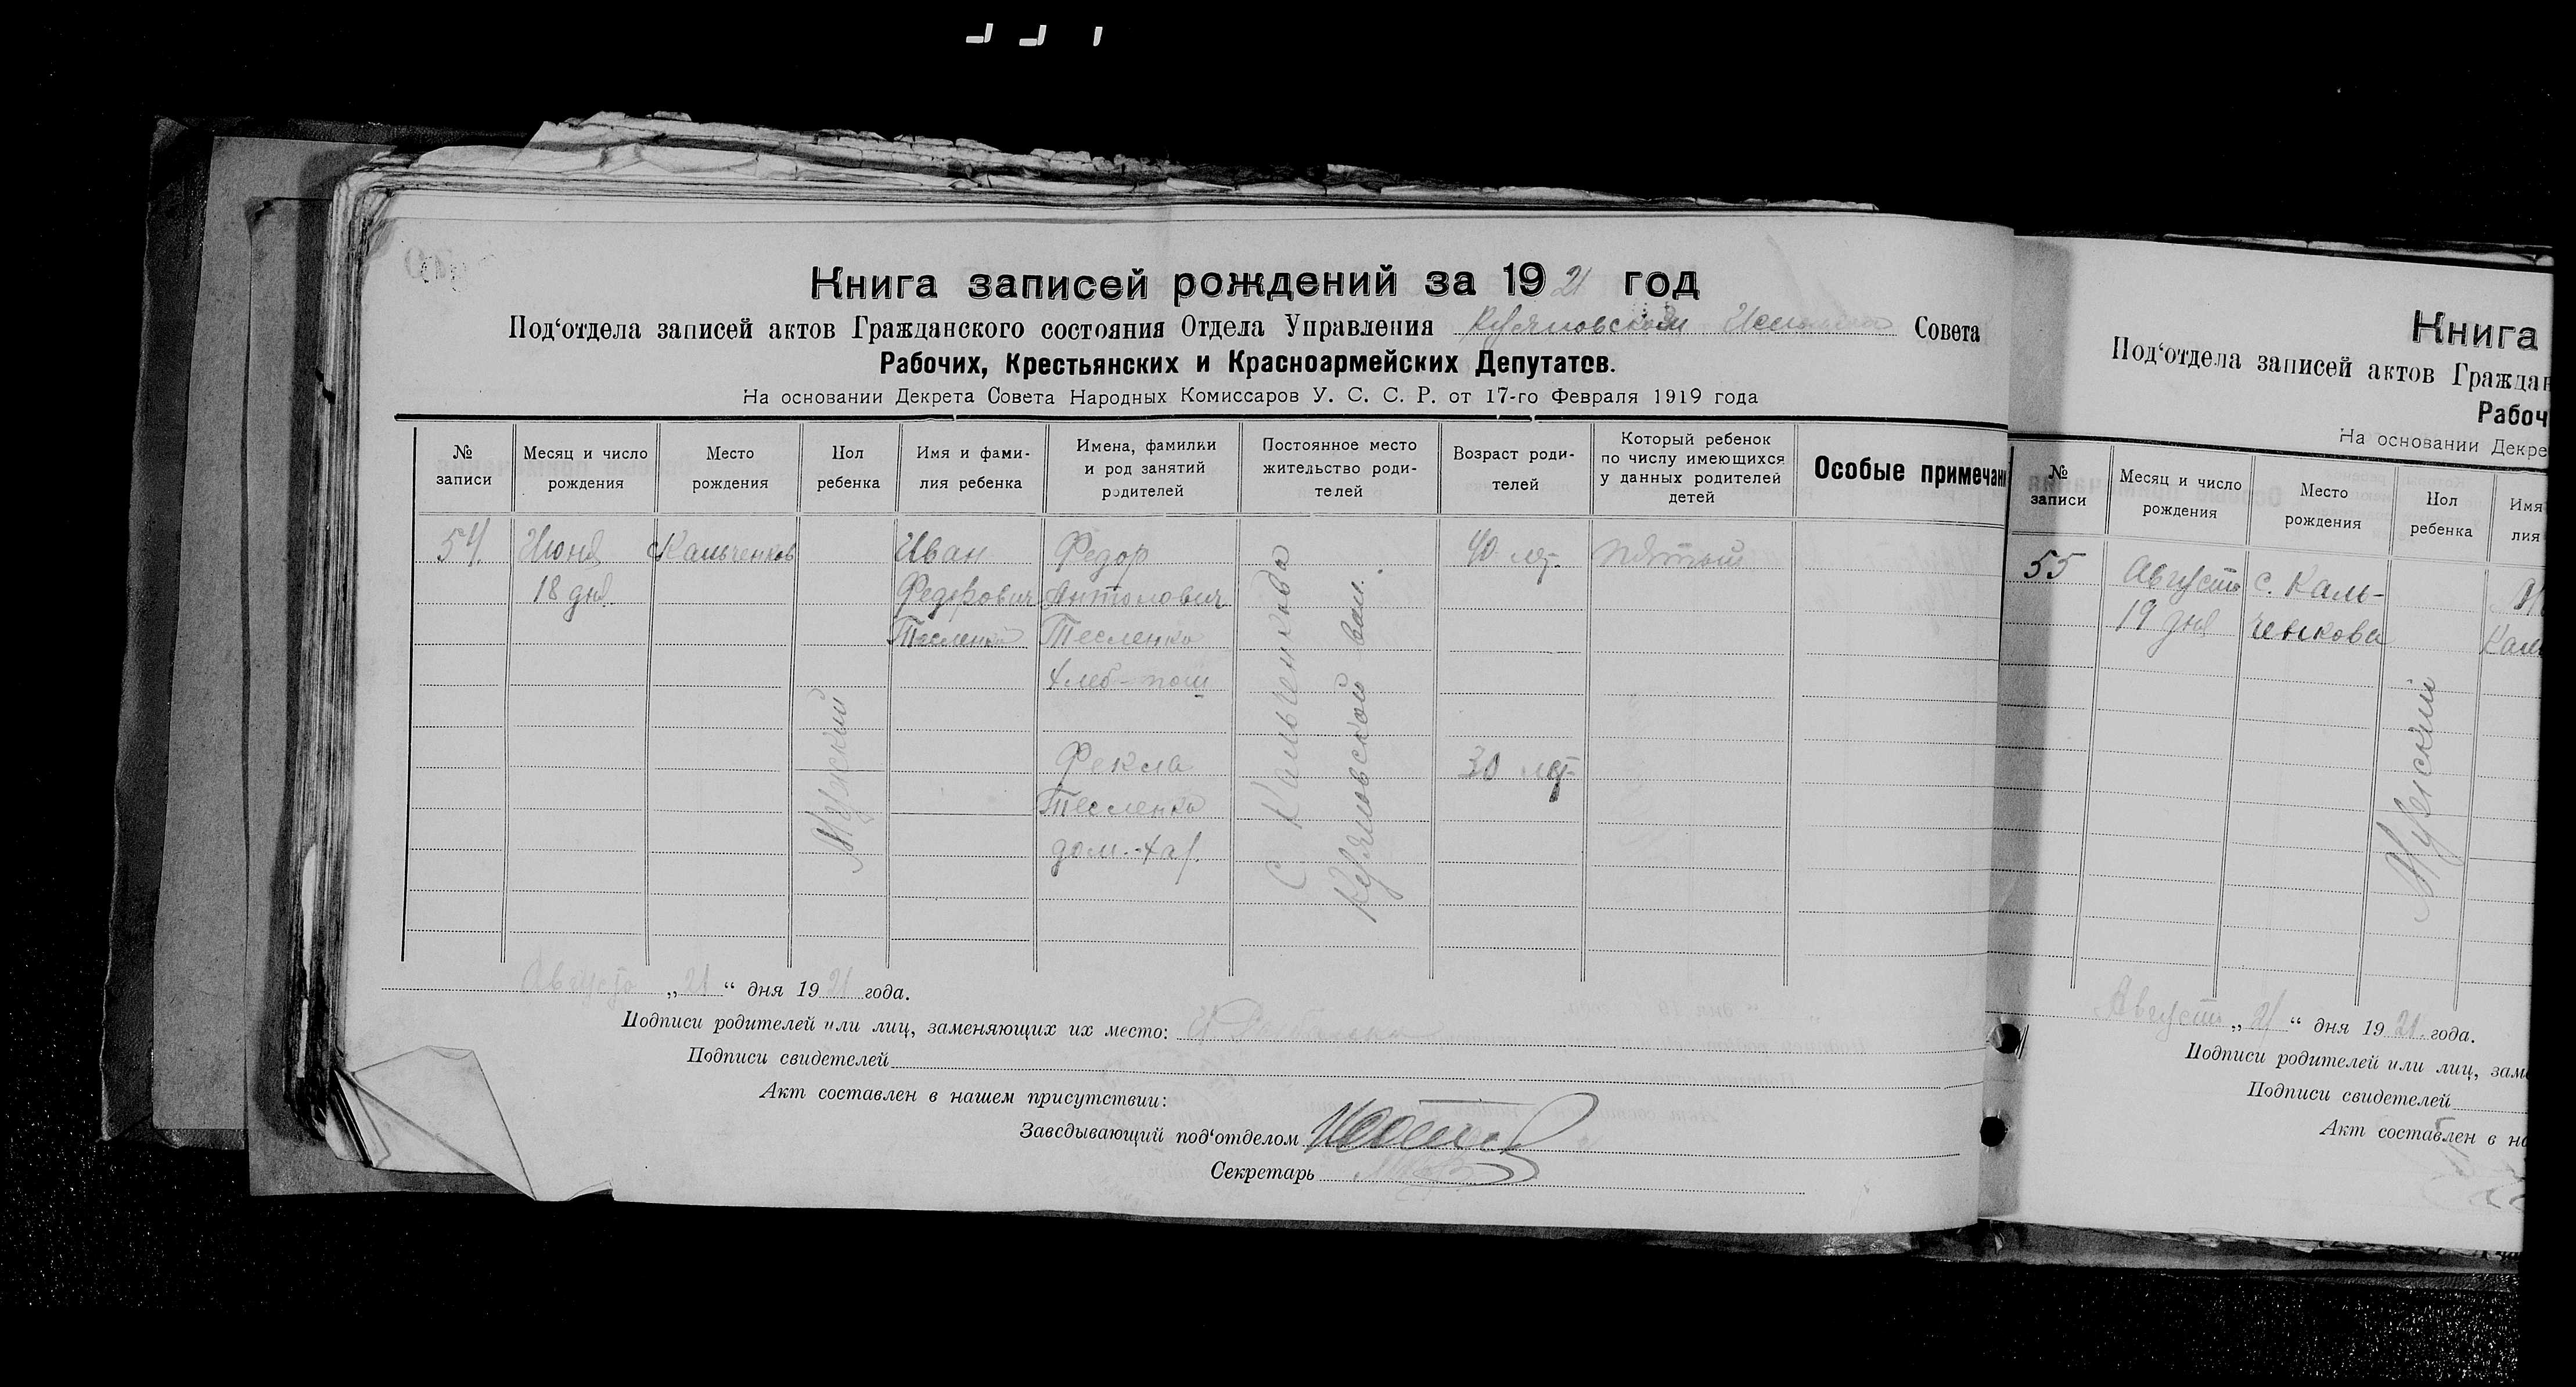 Книга записей рождений за 1921 год
Под‘отдела записей актов Гражданского состояния Отдела Управления Совета
Рабочих, Крестьянских и Красноармейских Депутатов.
На основании Декрета Совета Народных Комиссаров У. С. С. Р. от 17-го Февраля 1919 года
№ записи
Месяц и число рождения
Место рождения
Пол ребенка
Имя и фами-
лия ребенка
Имена, фамилии
и род занятий
родителей
Постоянное место
жительство роди-
телей
Возраст роди-
телей
Который ребенок
по числу имеющихся
у данных родителей
детей
Особые примечан
54.
Июня
18 дня
с Кальченков
Мужский
Иван
Федорович
Тесленко
Федор
Антонович
Тесленко
хлеб-паш
Фекла
Тесленко
дом.-хаз.
С Кальченкова
вол.
40 лет
30 лет
пятый
Августа „21“ дня 1921 года.
Подписи родителей или лиц, заменяющих их место:
Подписи свидетелей
Акт составлен в нашем присутствии:
Заведывающий под‘отделом
Секретарь
Книга
Под‘отдела записей актов Граждан
Рабоч
На основании Декре
№
записи
Месяц и число
рождения
Место
рождения
Пол
ребенка
Имя
лия
55
Августа
19 дня
с. Каль-
ченкова
Мужский
Августа „21“ дня 1921 года.
Подписи родителей или лиц, заме
Подписи свидетелей
Акт составлен в на